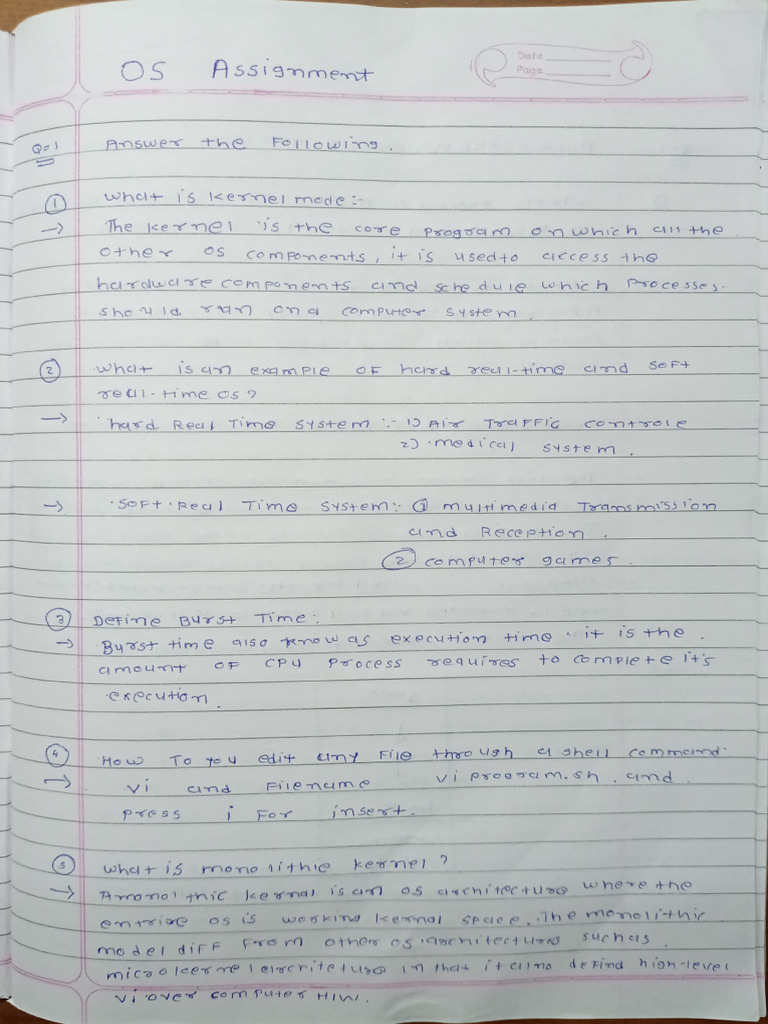 OS Assignment
Date
Page
Q=1 Answer the Following.
① What is kernel mode:-
→ The kernel is the core program on which all the
other os components, it is used to access the
hardware components and schedule which processes.
should run on a computer system.
② What is an example of hard real-time and soft
real-time os?
→ hard Real Time system :- 1) Air Traffic controle
2) medical system.
→ Soft Real Time System:- ① multimedia Transmission
and Reception.
② computer games.
③ Define Burst Time:
→ Burst time also know as execution time. it is the.
amount of CPU Process requires to complete it's
execution.
④ How To you edit any file through a shell command.
→ vi and Filename vi program.sh. and
press i for insert.
⑤ What is monolithic kernel?
→ A monolthic kernal is an os architecture where the
entrioe os is working kernal space. The monolithic
model diff from other os architectures such as.
microkernel arcriteture in that it alno defind high-level
vi over computer H/W.